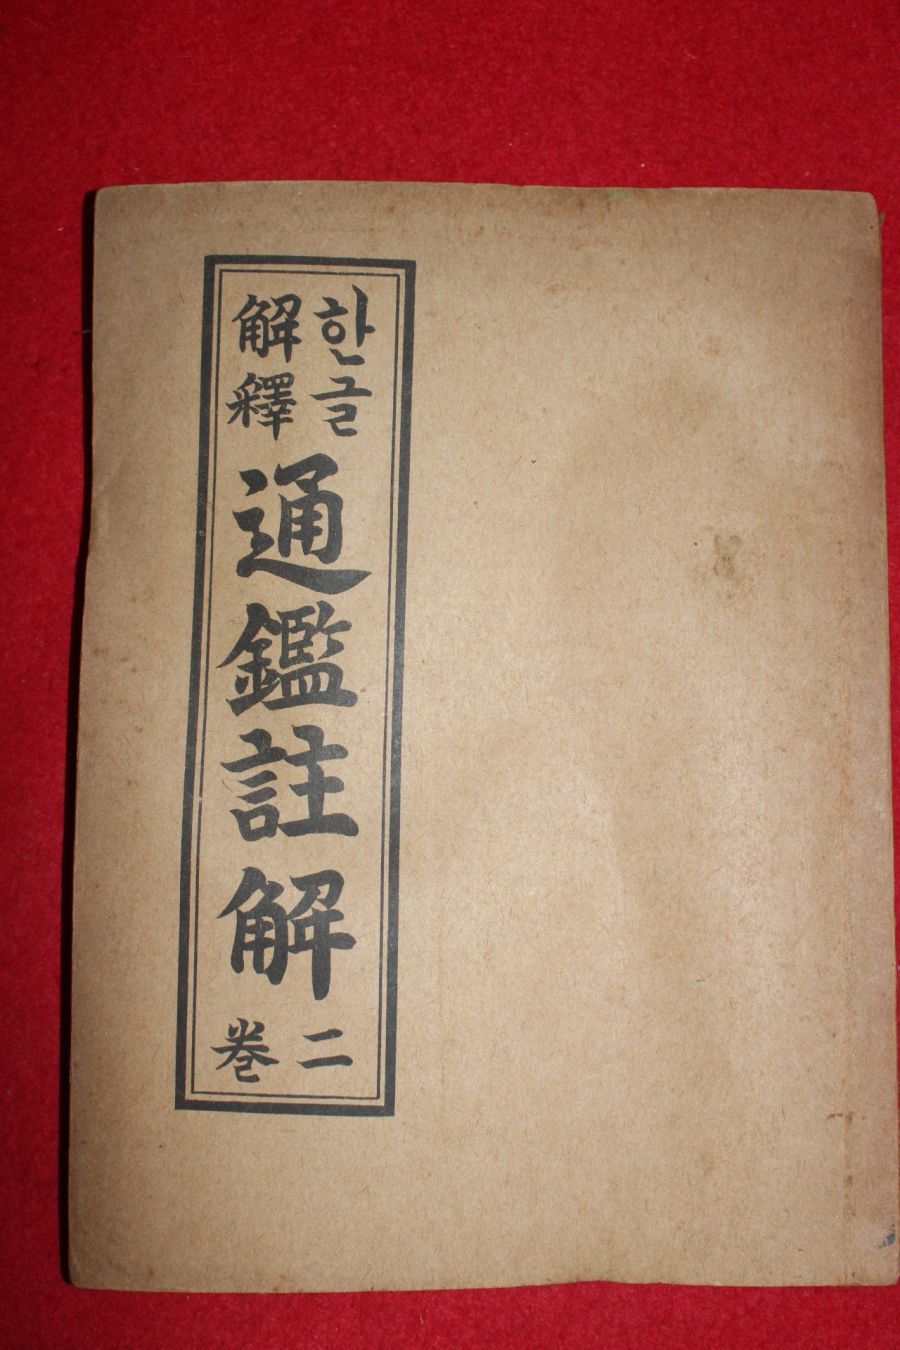 한글
解釋
通鑑註解
二卷